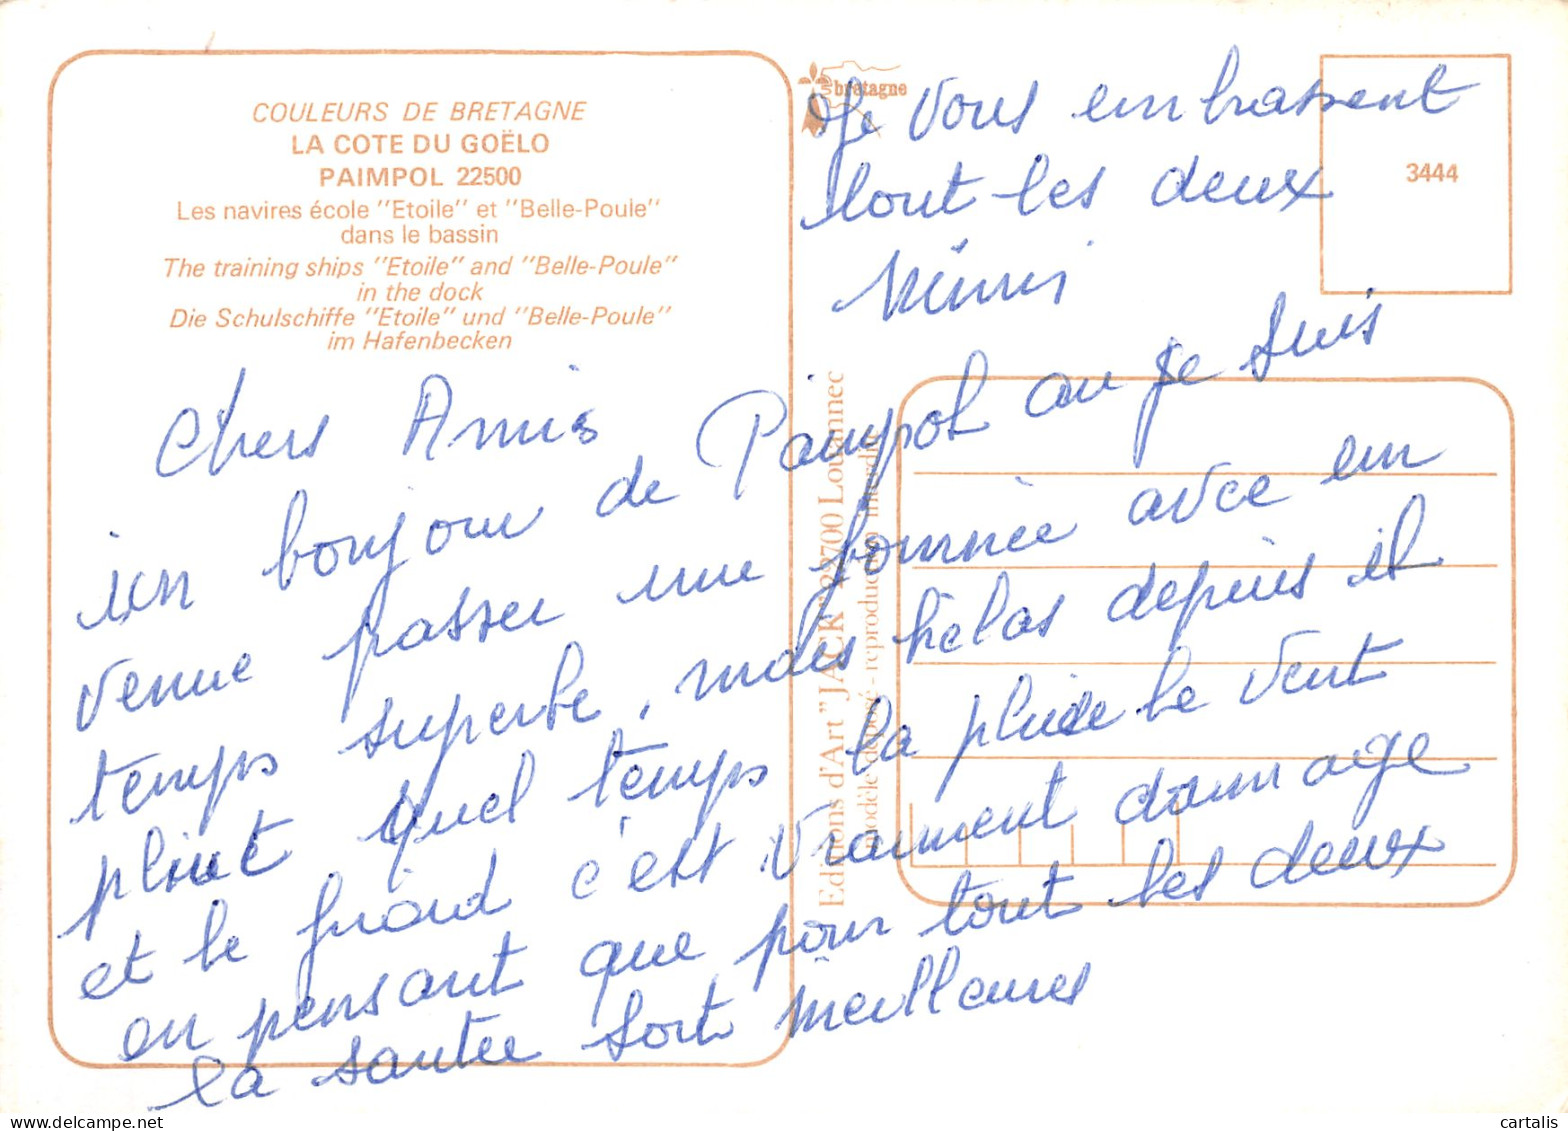 COULEURS DE BRETAGNE
LA COTE DU GOËLO
PAIMPOL 22500
Les navires école "Etoile" et "Belle-Poule"
dans le bassin
The training ships "Etoile" and "Belle-Poule"
in the dock
Die Schulschiffe "Etoile" und "Belle-Poule"
im Hafenbecken
bretagne
3444
Editions d'Art "JACK" 22700 Louannec
modèle déposé - reproduction interdite
Chers Amis
un bonjour de Paimpol ou je suis
venue passer une journée avec un
temps superbe, mais hélas depuis il
pleut quel temps la pluie le vent
et le froid c'est vraiment domage
en pensant que pour tout les deux
la santée sort meilleures
Je vous embrassent
tout les deux
Mimi
cartalis